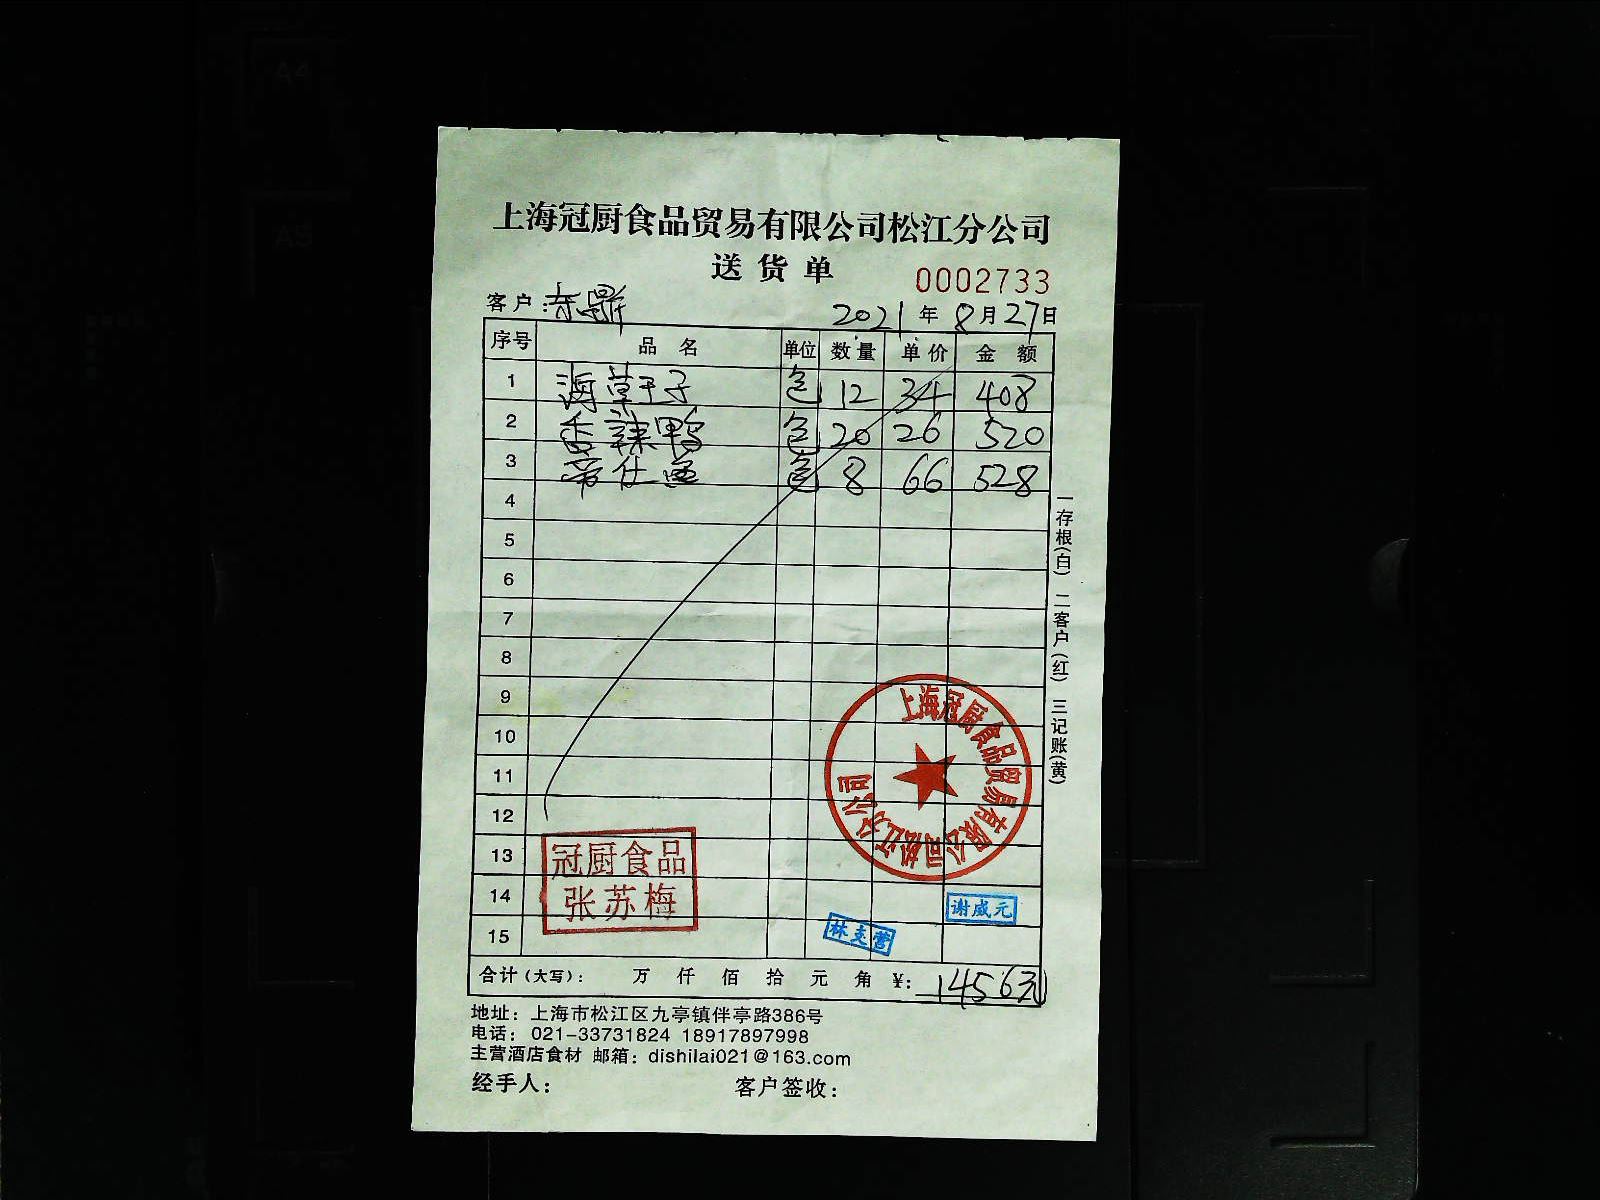 A4
A5
上海冠厨食品贸易有限公司松江分公司
送货单
0002733
客户: 东鼎
2021年8月27日
序号 品名 单位 数量 单价 金额
1 海草干子 包 12 34 408
2 香辣鸭 包 20 26 520
3 帝仕鱼 包 8 66 528
4
5
6
7
8
9
10
11
12
13
14
15
一存根(白) 二客户(红) 三记账(黄)
上海冠厨食品贸易有限公司松江分公司
冠厨食品
张苏梅
谢威元
林
合计(大写): 万 仟 佰 拾 元 角 ¥: 1456元
地址: 上海市松江区九亭镇伴亭路386号
电话: 021-33731824 18917897998
主营酒店食材 邮箱: dishilai021@163.com
经手人: 客户签收: